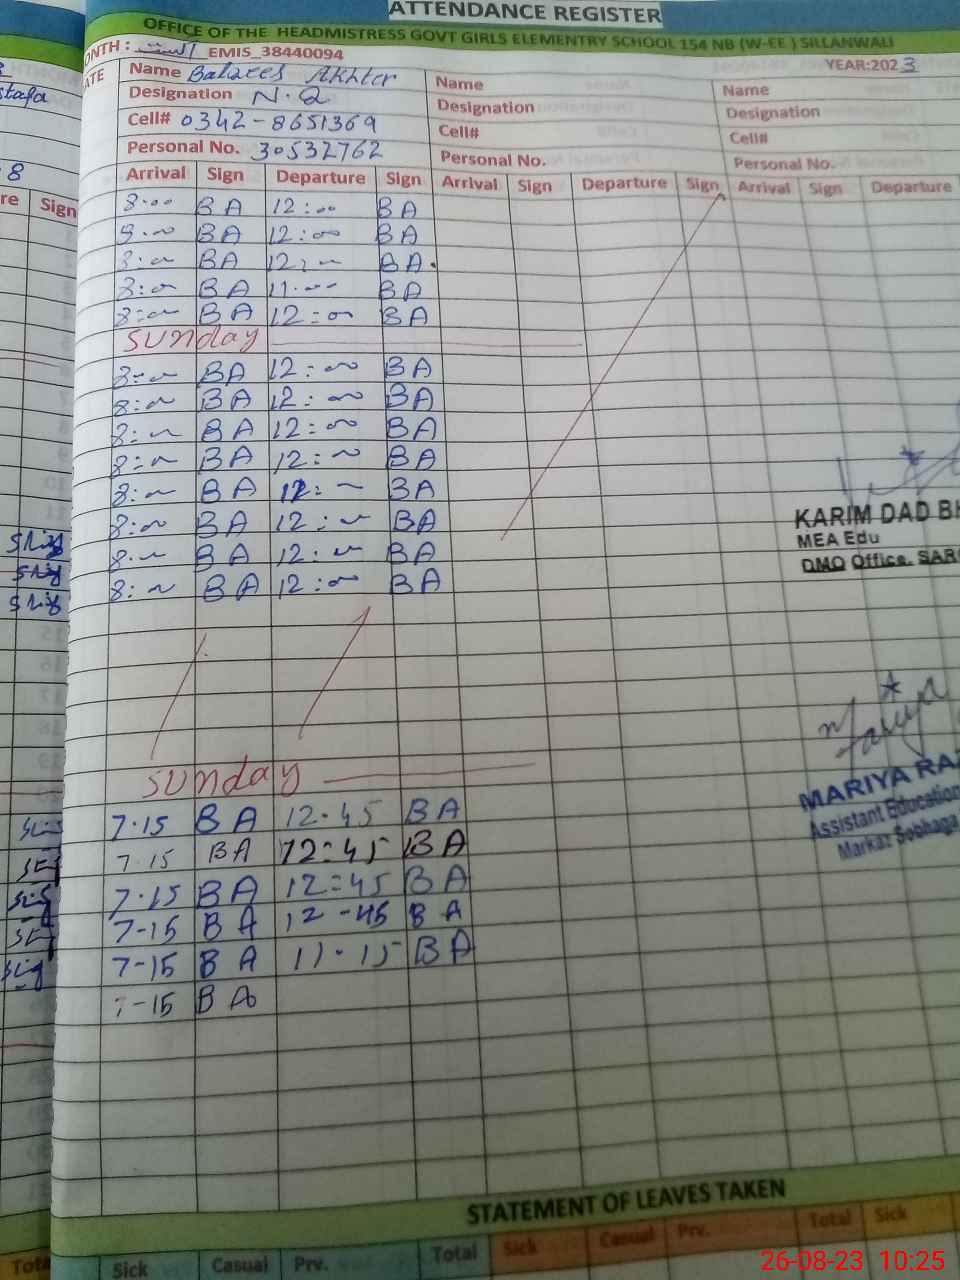 ATTENDANCE REGISTER
OFFICE OF THE HEADMISTRESS GOVT GIRLS ELEMENTRY SCHOOL 154 NB (W-EE ) SILLANWALI
ONTH : اگست EMIS_38440094 YEAR:2023
ATE Name Balqees Akhter Name Name
Designation N.Q Designation Designation
Cell# 0342-8651369 Cell# Cell#
Personal No. 30532762 Personal No. Personal No.
re Sign Arrival Sign Departure Sign Arrival Sign Departure Sign Arrival Sign Departure
8.00 BA 12:00 BA
8.00 BA 12:00 BA
8:00 BA 12:00 BA.
8:00 BA 11:00 BA
8:00 BA 12:00 BA
Sunday
8:00 BA 12:00 BA
8:00 BA 12:00 BA
8:00 BA 12:00 BA
8:00 BA 12:00 BA
8:00 BA 12:00 BA
8:00 BA 12:00 BA
8:00 BA 12:00 BA
8:00 BA 12:00 BA
KARIM DAD BH
MEA Edu
DMO Office. SARG
Sunday
MARIYA RAZ
Assistant Education
Markaz Sobhaga
7.15 BA 12.45 BA
7.15 BA 12:45 BA
7.15 BA 12=45 BA
7-15 BA 12-45 BA
7-15 BA 11.15 BA
7-15 BA
STATEMENT OF LEAVES TAKEN
Tota Sick Casual Prv. Total Sick Casual Prv. Total Sick
26-08-23 10:25